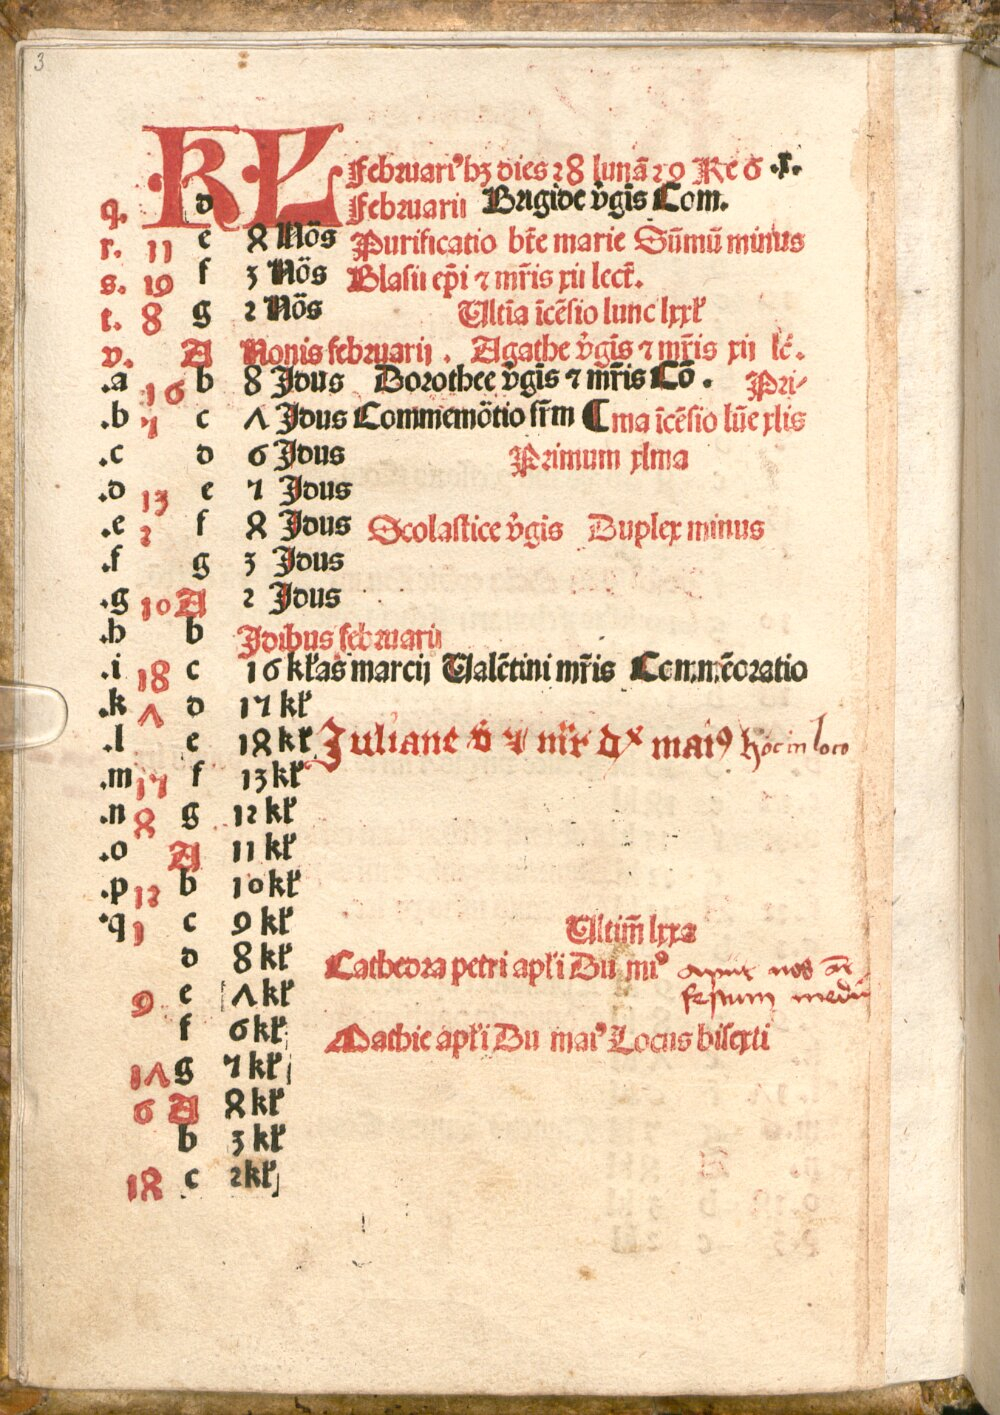 3
KL Februariꝰ hꝫ dies 28 lunã 29 Re 6 .x.
q. d Februarii Brigide v̉gis Com.
r. 11 e 8 Nõs Purificatio bt̃e marie Sũmũ minus
s. 19 f 3 Nõs Blasii ep̃i ⁊ mr̃is xii lect̃.
t. 8 g 2 Nõs Ultĩa ĩcẽsio lune lxxͤ
v. A Nonis februarij . Agathe v̉gis ⁊ mr̃is xij lc̃.
.a 16 b 8 Idus Dorothee v̉gis ⁊ mr̃is Cõ . Pri-
.b 7 c Λ Idus Commemõtio fr̃m ¶ ma ĩcẽsio lũe xlis
.c d 6 Idus Primum xlma
.d 13 e 7 Idus
.e 2 f 8 Idus Scolastice v̉gis Duplex minus
.f g 3 Idus
.g 10 A 2 Idus
.h b Idibus februarii
.i 18 c 16 kl̕as marcij Ualẽtini mr̃is Commẽoratio
.k Λ d 17 kl̕
.l e 18 kl̕ Juliane v̄ ⁊ mr̃ dx maiꝰ hoc in loco
.m 17 f 13 kl̕
.n 8 g 12 kl̕
.o A 11 kl̕
.p 12 b 10 kl̕
.q 1 c 9 kl̕ Ultim̃ lxxa
d 8 kl̕ Cathedra petri apl̕i Du miꝰ apud nos
9 e Λ kl̕ festum mediũ
f 6 kl̕ Mathie apl̕i Du maiꝰ Locus bisexti
1Λ g 7 kl̕
6 A 8 kl̕
b 3 kl̕
18 c 2 kl̕